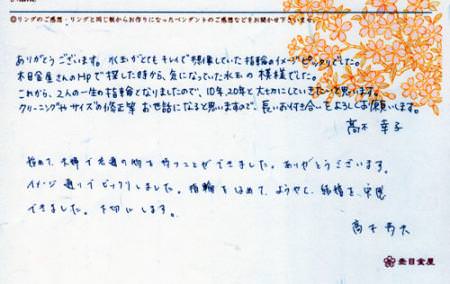 ◎リングのご感想・リングと同じ板からお作りになったペンダントのご感想などをお聞かせ下さいませ。
ありがとうございます。水玉がとてもキレイで想像していた指輪のイメージピッタリでした。
木目金屋さんのHPで探した時から、気になっていた水玉の模様でした。
これから、2人の一生の指輪となりましたので、10年、20年と大切にしていきたいと思います。
クリーニングやサイズの修正等お世話になると思いますので、長いお付き合いをよろしくお願いします。
高木 幸子
初めて、夫婦で共通の物を持つことができました。ありがとうございます。
イメージ通りでビックリしました。指輪をはめて、ようやく、結婚を、実感
できました。大切にします。
高木
杢目金屋